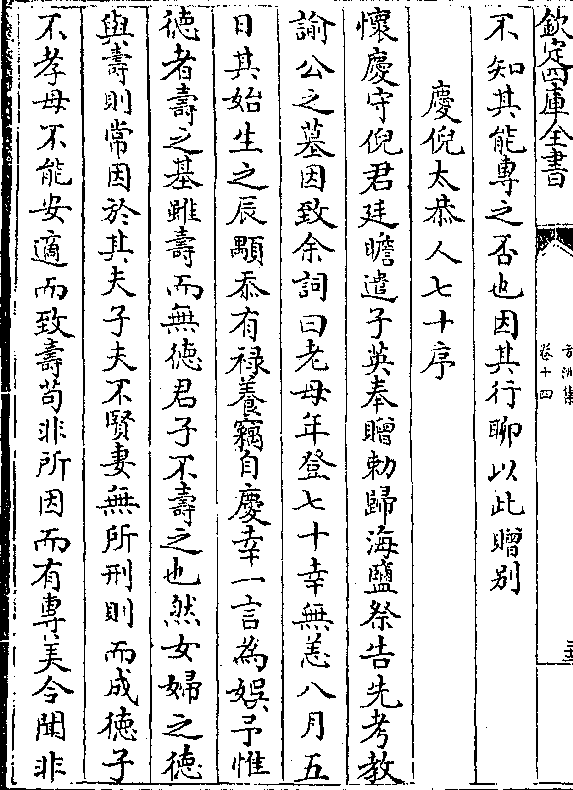 欽定四庫全書
方洲集
卷十四
不知其能專之否也因其行聊以此贈别
慶倪太恭人七十序
懷慶守倪君廷瞻遣子英奉贈勅歸海鹽祭告先考教
諭公之墓因致余詞曰老母年登七十幸無恙八月五
日其始生之辰顒忝有禄養竊自慶幸一言為娛予惟
德者壽之基雖壽而無德君子不壽之也然女婦之德
與壽則常因於其夫子夫不賢妻無所刑則而成德子
不孝母不能安適而致壽苟非所因而有專美令聞非